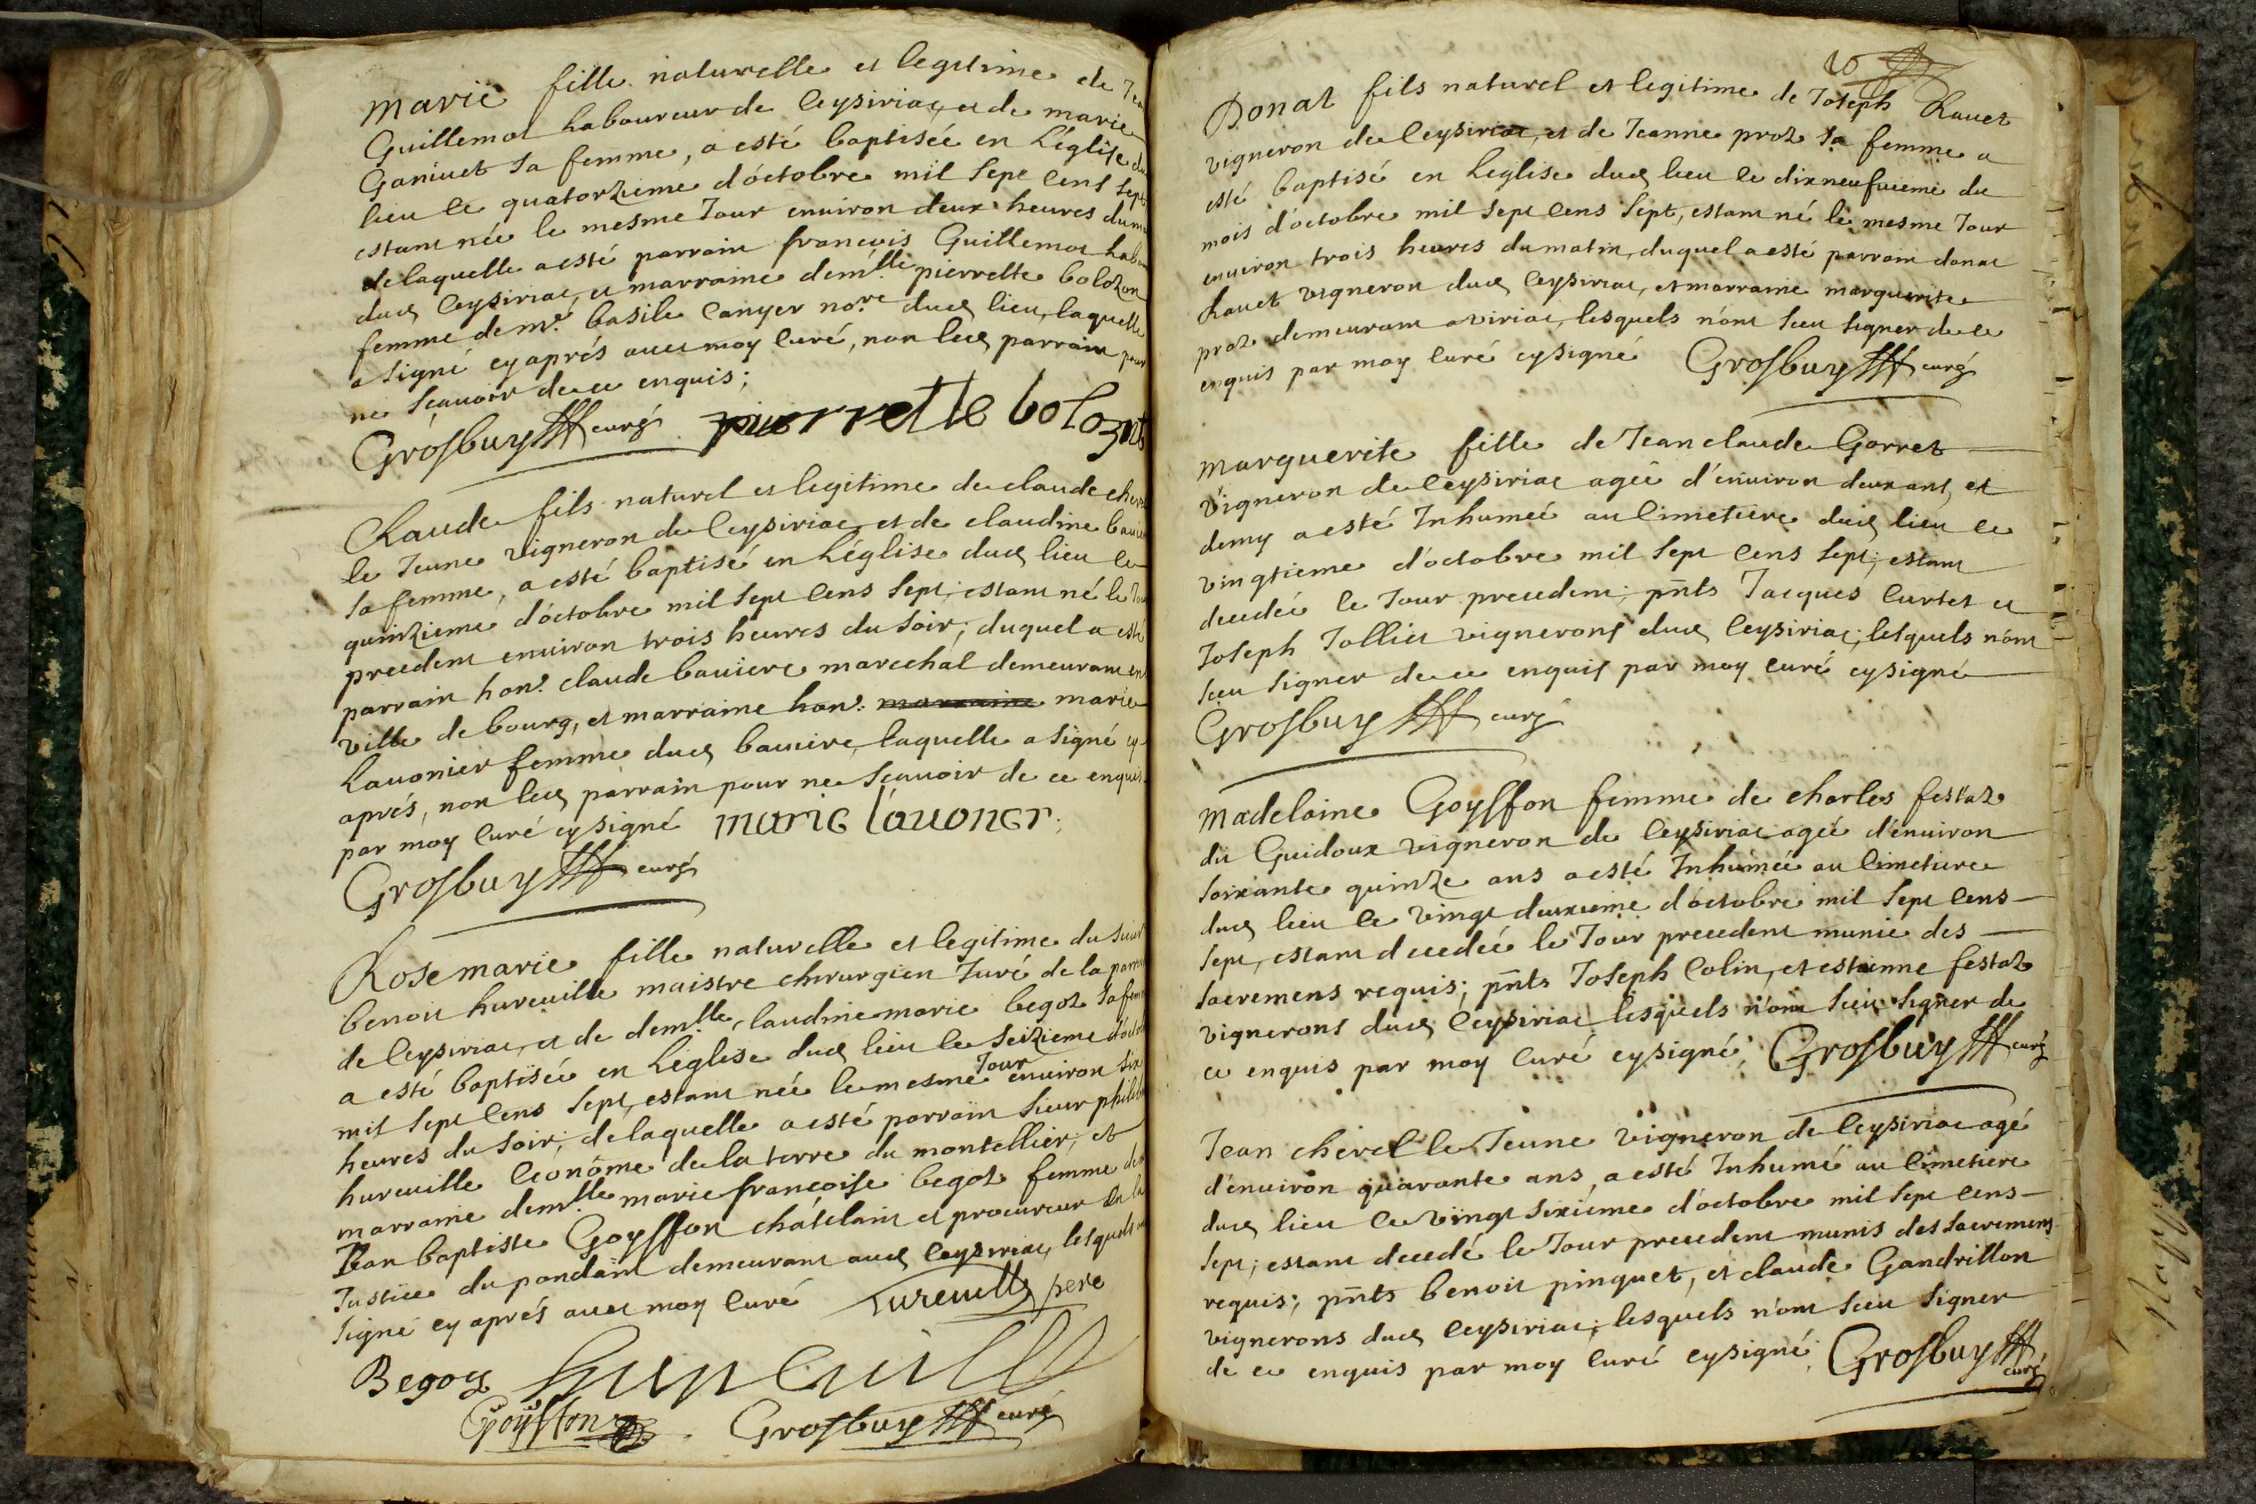 Marie fille naturelle et legitime de
Guillemot Laboureur de Ceysiriac, et de marie
Ganiuet sa femme, a esté baptisée en L'église du
lieu le quatorzieme d'octobre mil sept cens sept
estant née le mesme Jour environ deux heures du
de laquelle a esté parrain francois Guillemot
dud Ceysiriac, et marraine demlle pierrette bolozon
femme de me basile Canyer nore dud lieu, laquelle
a signé cy aprés avec moy Curé, non led parrain pour
ne sçauoir de ce enquis;
Grosbuy curé pierrette bolozon
Claude fils naturel et legitime de claude
le Jeune vigneron de Ceysiriac, et de claudine
sa femme, a esté baptisé en L'église dud lieu le
quinzieme d'octobre mil sept cens sept; estant né le
precedent environ trois heures du soir; duquel a esté
parrain hon. claude bauiere marechal demeurant en
ville de bourg, et marraine hon. marraine marie
Lauonier femme dud bauiere, laquelle a signé cy
aprés, non led parrain pour ne scauoir de ce enquis
par moy Curé cy signé marie lauoner
Grosbuy curé
Rose marie fille naturelle et legitime du sieur
benoit hureuille maistre chirurgien Juré de la
de Ceysiriac, et de demlle Claudine marie begoz sa
a esté baptisée en L'eglise dud lieu le seizieme
mil sept cens sept, estant née le mesme Jour environ six
heures du soir; de laquelle a esté parrain sieur
hureuille Econôme de la terre du montellier, et
marraine demlle marie francoise begoz femme de
Jean baptiste Goyffon châtelain et procureur en la
Justice du pondain demeurant aud Ceysiriac, lesquels
signé cy aprés avec moy Curé hureuille pere
Begoz hureuille
Goyffon Grosbuy curé
10
Donat fils naturel et legitime de Joseph Rauet
vigneron de Ceysiriac, et de Jeanne proz sa femme a
esté baptisé en L'eglise dud lieu le dixneufuieme du
mois d'octobre mil sept cens sept, estant né le mesme Jour
environ trois heures du matin, duquel a esté parrain donat
Rauet vigneron dud Ceysiriac, et marraine marguerite
proz demeurant a viriac, lesquels n'ont sceu signer de ce
enquis par moy Curé cy signé Grosbuy curé
Marguerite fille de Jean claude Gorret
vigneron de Ceysiriac agée d'environ deux ans et
demy a esté Inhumée au Cimetiere dud lieu le
vingtieme d'octobre mil sept cens sept; estant
decedée le Jour precedent; pnts Jacques Curtet et
Joseph Jollier vignerons dud Ceysiriac; lesquels n'ont
sceu signer de ce enquis par moy curé cy signé
Grosbuy curé
Madelaine Goyffon femme de charles festaz
dit Guidoux vigneron de Ceysiriac agée d'environ
soixante quinze ans a esté Inhumée au Cimetiere
dud lieu le vingt deuxieme d'octobre mil sept cens
sept, estant decedée le Jour precedent munie des
sacremens requis; pnts Joseph Colin, et estienne festaz
vignerons dud Ceysiriac lesquels n'ont sceu signer de
ce enquis par moy Curé cy signé; Grosbuy curé
Jean cherel le Jeune vigneron de Ceysiriac agé
d'environ quarante ans, a esté Inhumé au Cimetiere
dud lieu le vingt sixiéme d'octobre mil sept cens
sept; estant decedé le Jour precedent munis des sacremens
requis; pnts benoit pinguet, et claude Gandrillon
vignerons dud Ceysiriac; lesquels n'ont sceu signer
de ce enquis par moy Curé cy signé Grosbuy
curé